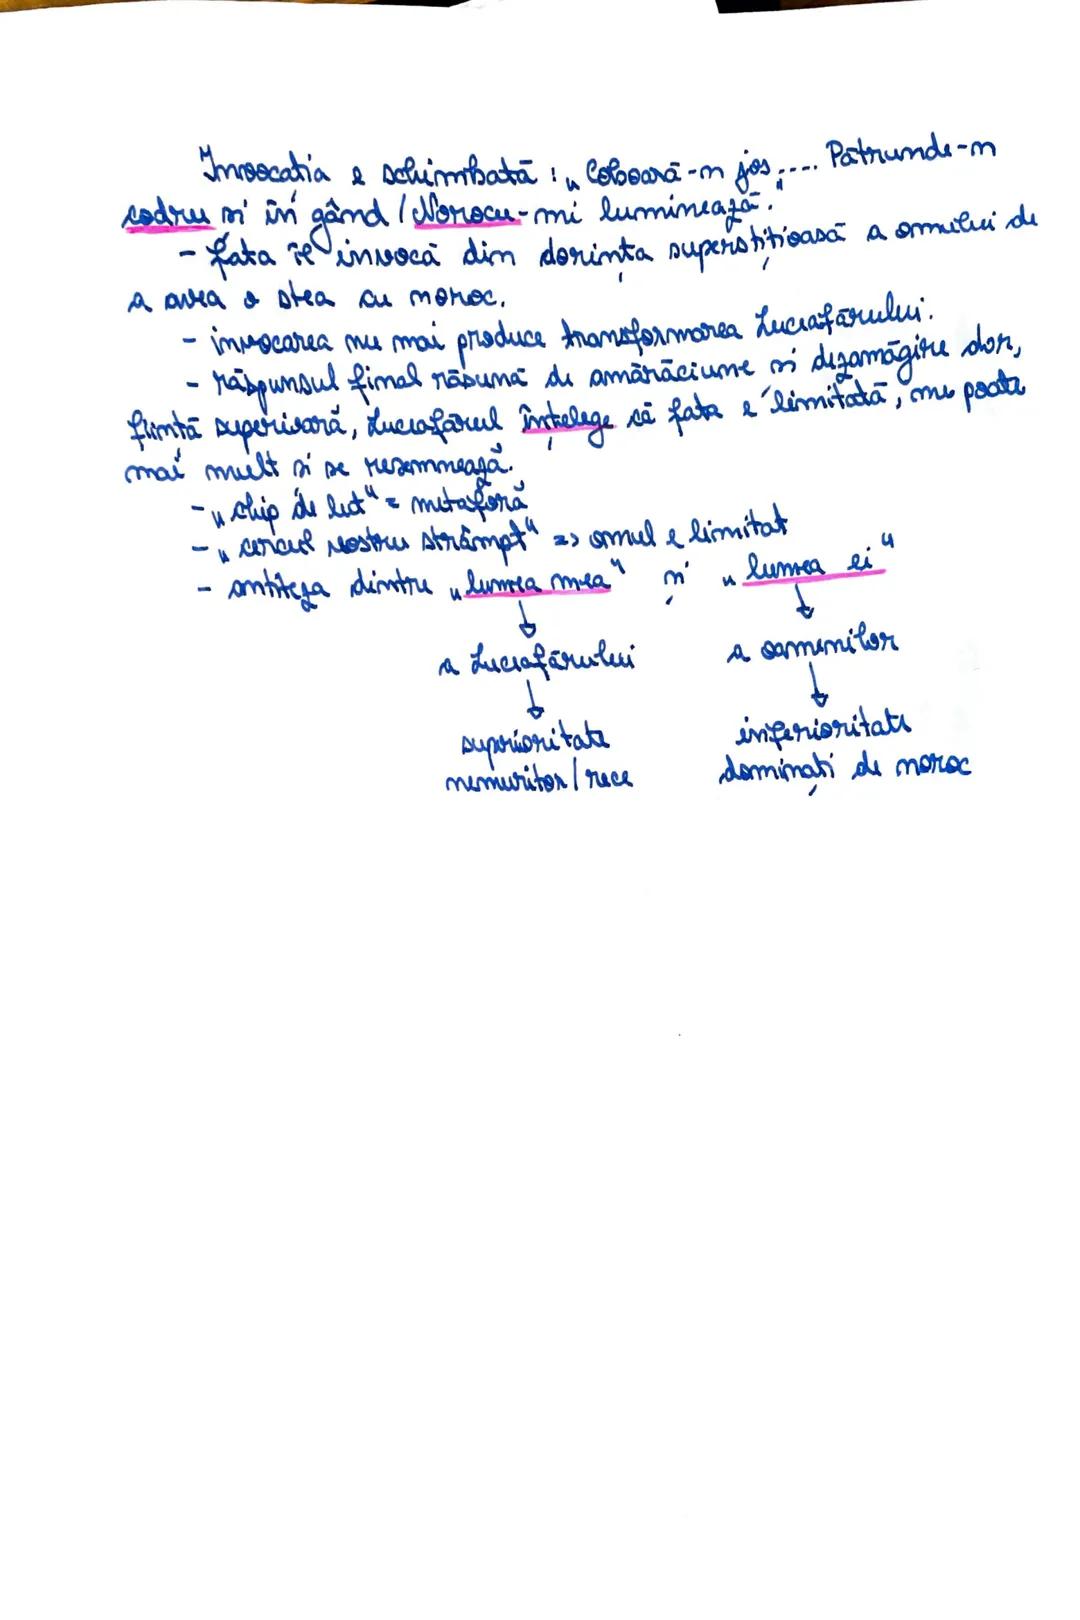 Invocatia e schimbată : „Coboară-n jos,.... Pătrunde-n
codru și în gând / Norocu-mi luminează."
- fata îl invocă din dorința superstițioasă a omului de
a avea o stea cu noroc.
- invocarea nu mai produce transformarea Luceafărului.
- răspunsul final răsună de amărăciune și dezamăgire dor,
ființă superioară, Luceafărul înțelege că fata e limitată, nu poate
mai mult și se resemnează.
- „chip de lut" = metaforă
- „cercul vostru strâmpt" => omul e limitat
- antiteza dintre „lumea mea" și „lumea ei"
a Luceafărului a oamenilor
superioritate inferioritate
nemuritor / rece dominați de noroc